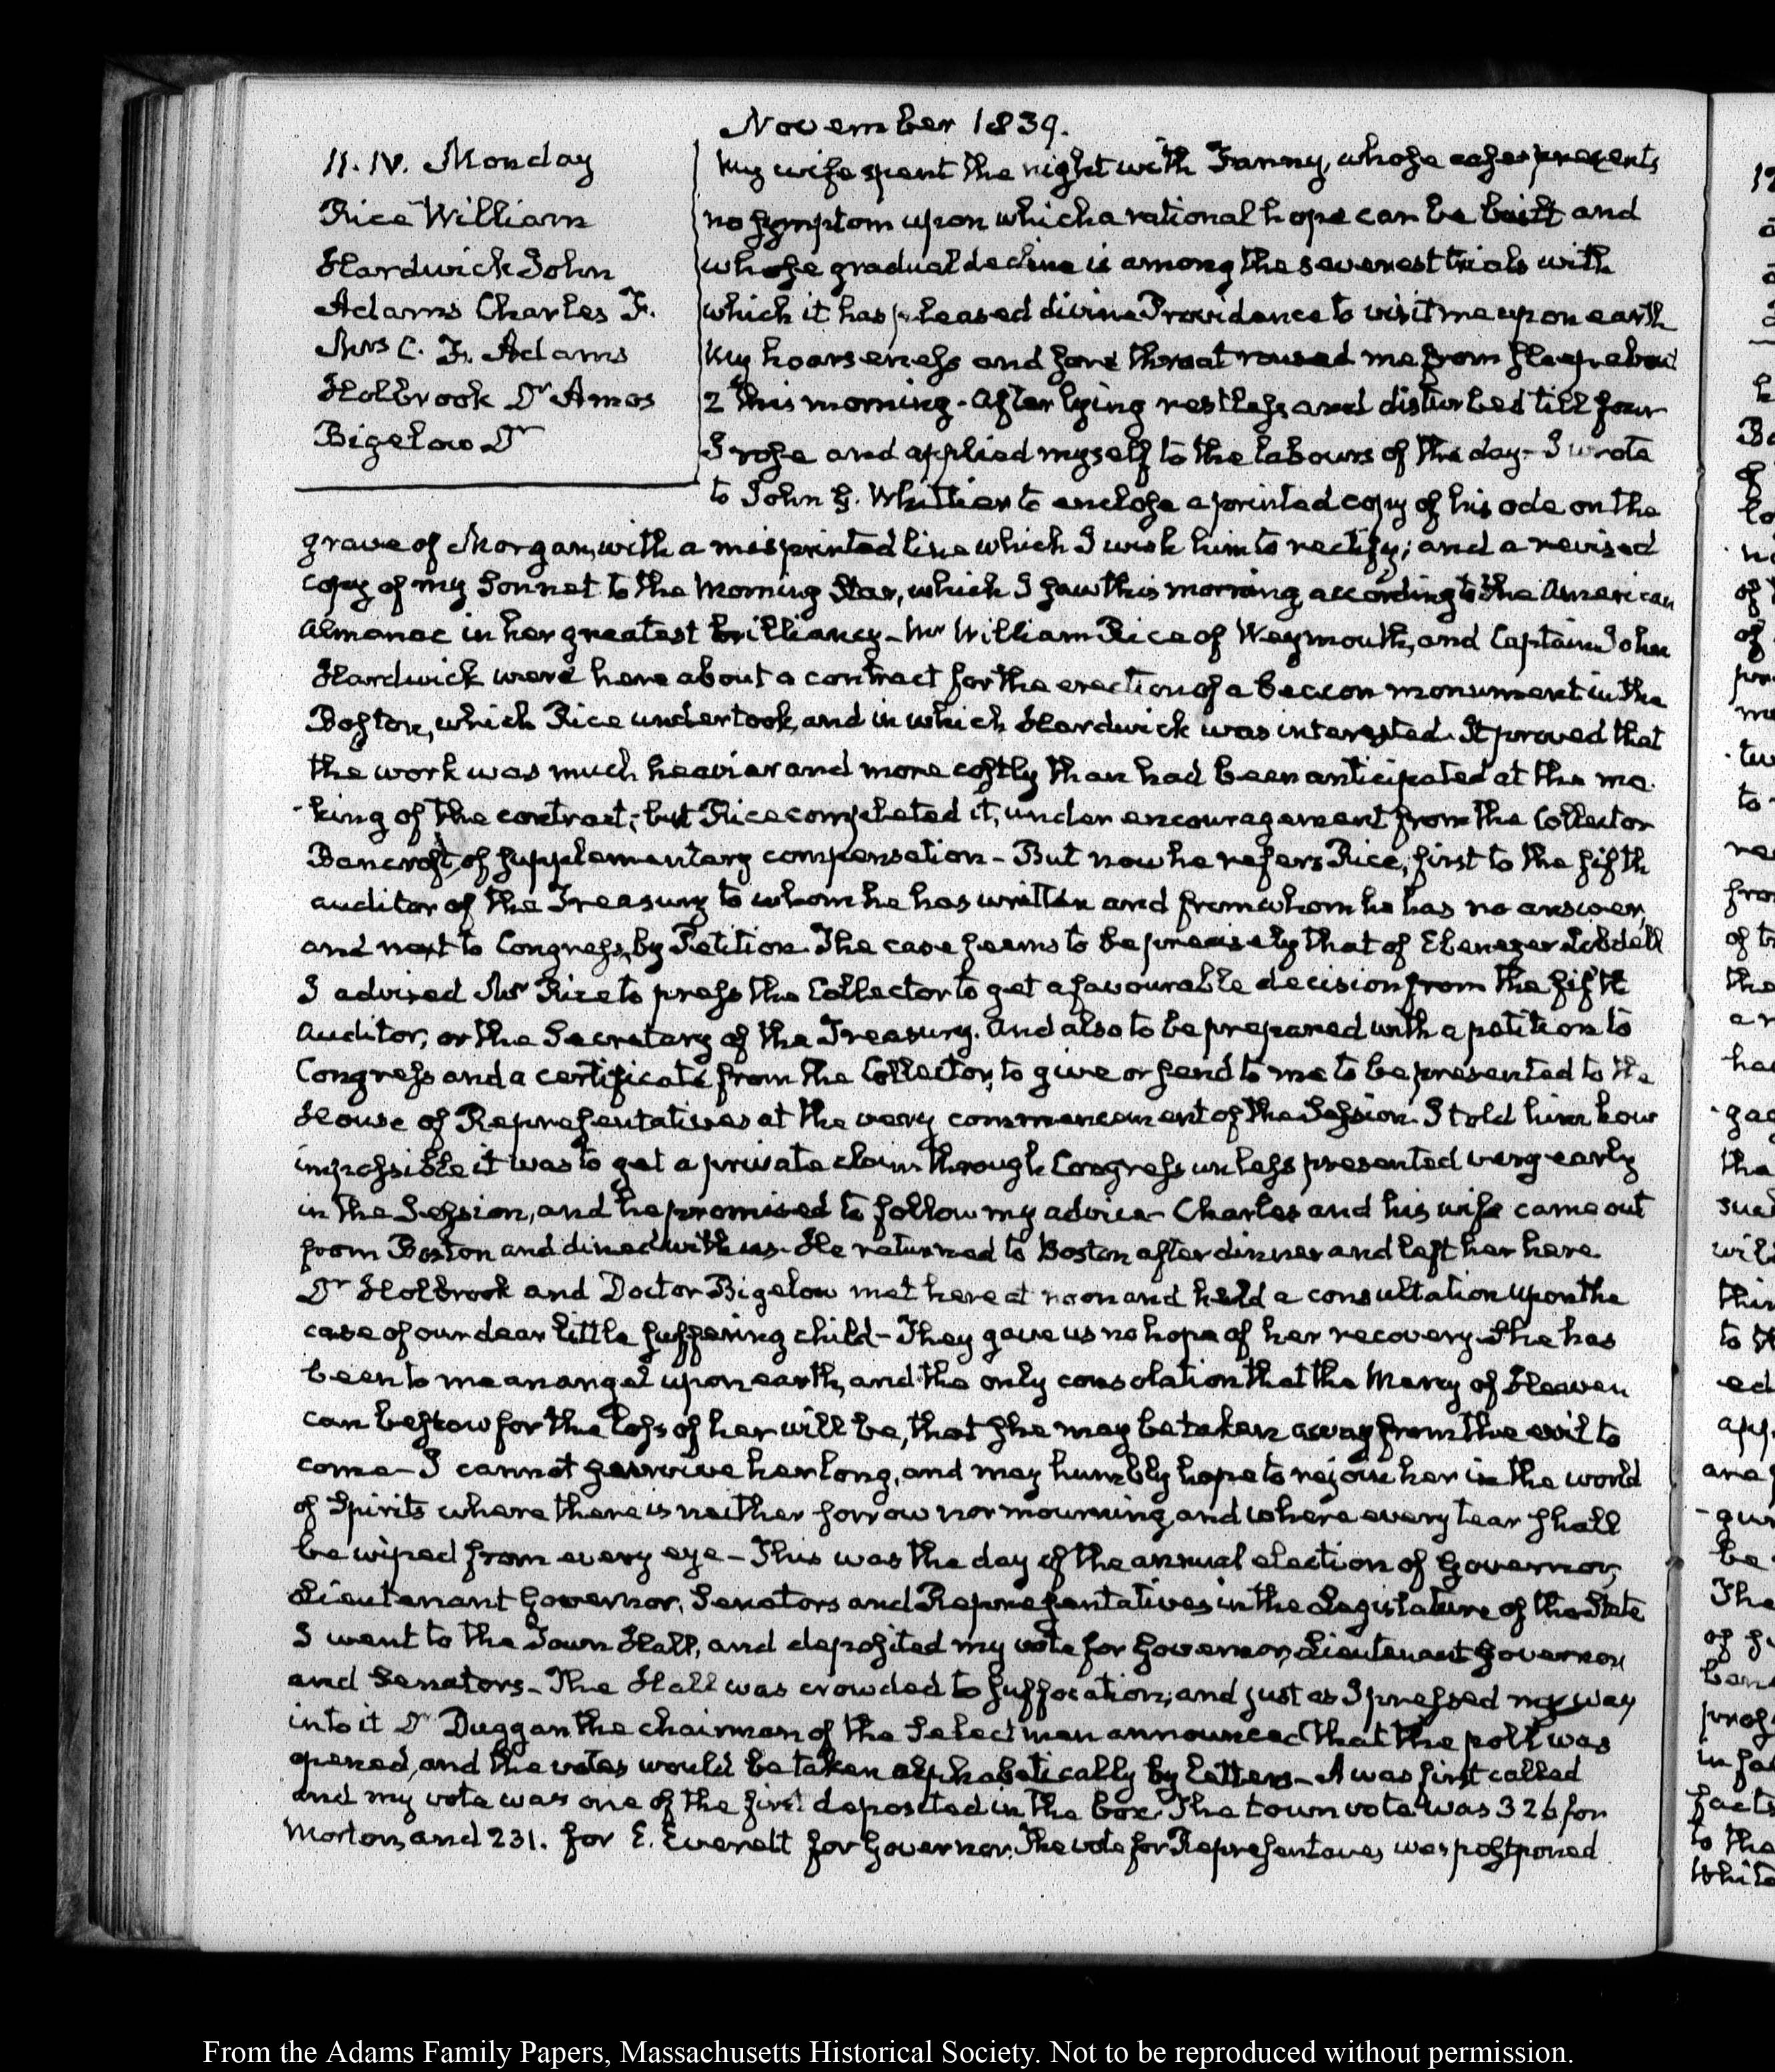 November 1839.
11. IV. Monday
Rice William
Hardwick John
Adams Charles F.
Mrs C. F. Adams
Holbrook Dr Amos
Bigelow Dr
My wife spent the night with Fanny, whose case presents
no symptom upon which a rational hope can be built and
whose gradual decline is among the severest trials with
which it has pleased divine Providence to visit me upon earth
My hoarseness and sore throat roused me from sleep about
2 this morning. After lying restless and disturbed till four
I rose and applied myself to the labours of the day. I wrote
to John G. Whittier to enclose a printed copy of his ode on the
grave of Morgan, with a misprinted line which I wish him to rectify; and a revised
copy of my Sonnet to the Morning Star, which I saw this morning according to the American
Almanac in her greatest brilliancy - Mr William Rice of Weymouth, and Captain John
Hardwick were here about a contract for the erection of a beacon monument in the
Boston, which Rice undertook, and in which Hardwick was interested. It proved that
the work was much heavier and more costly than had been anticipated at the ma-
-king of the contract; but Rice completed it, under encouragement from the Collector
Bancroft, of supplementary compensation - But now he refers Rice, first to the fifth
auditor of the Treasury to whom he has written and from whom he has no answer,
and next to Congress, by Petition. The case seems to be precisely that of Ebenezer Lobdell
I advised Mr Rice to press the Collector to get a favourable decision from the fifth
Auditor, or the Secretary of the Treasury. And also to be prepared with a petition to
Congress and a certificate from the Collector, to give or send to me to be presented to the
House of Representatives at the very commencement of the Session. I told him how
impossible it was to get a private claim through Congress unless presented very early
in the Session, and he promised to follow my advice - Charles and his wife came out
from Boston and dined with us. He returned to Boston after dinner and left her here.
Dr Holbrook and Doctor Bigelow met here at noon and held a consultation upon the
case of our dear little suffering child - They gave us no hope of her recovery. She has
been to me an angel upon earth, and the only consolation that the Mercy of Heaven
can bestow for the loss of her will be, that she may be taken away from the evil to
come - I cannot survive her long, and may humbly hope to rejoin her in the world
of Spirits where there is neither sorrow nor mourning, and where every tear shall
be wiped from every eye - This was the day of the annual election of Governor,
Lieutenant Governor, Senators and Representatives in the Legislature of the State
I went to the Town Hall, and deposited my vote for Governor, Lieutenant Governor
and Senators - The Hall was crowded to suffocation; and just as I pressed my way
into it Dr Duggan the chairman of the Select men announced that the poll was
opened, and the votes would be taken alphabetically by letters - A was first called
and my vote was one of the first deposited in the box. The town vote was 326 for
Morton, and 231. for E. Everett for Governor. The vote for Representaves was postponed
From the Adams Family Papers, Massachusetts Historical Society. Not to be reproduced without permission.